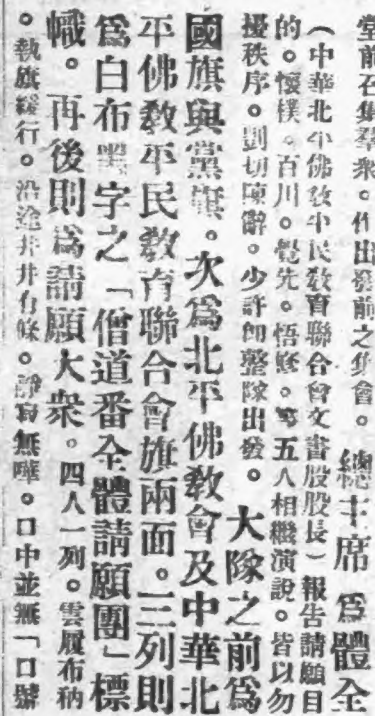 堂前召集羣衆。作出發前之集會。總主席爲體全
（中華北平佛敎平民敎育聯合會文書股股長）報告請願目
的。懷樸。百川。覺先。悟修。等五人相繼演說。皆以勿
擾秩序。剴切陳辭。少許卽整隊出發。大隊之前爲
國旗與黨旗。次爲北平佛敎會及中華北
平佛敎平民敎育聯合會旗兩面。三列則
爲白布黑字之「僧道番全體請願團」標
幟。再後則爲請願大衆。四人一列。雲履布衲
。執旗緩行。沿途井井有條。靜寂無嘩。口中並無「口號